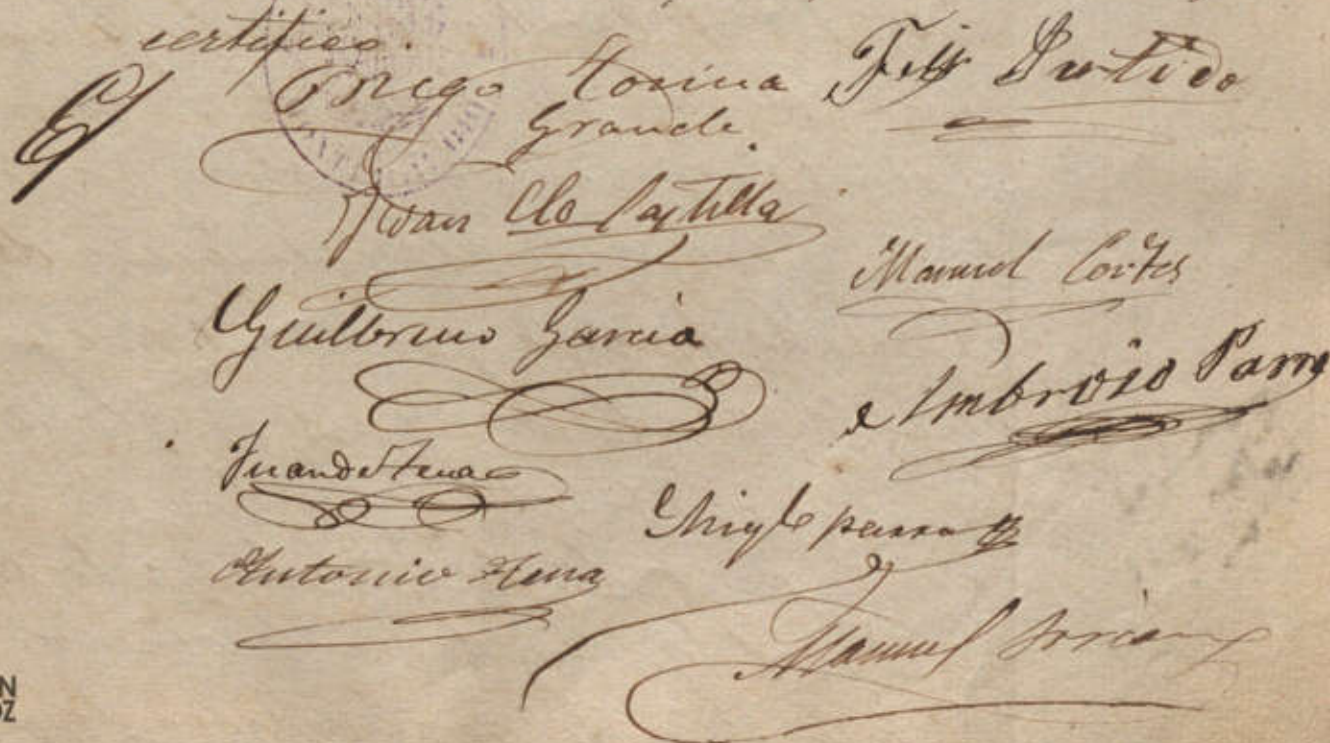 certifico.
El Diego Horina Felix Partido
Grande
Juan de Castilla
Manuel Cortes
Guillermo Garcia
Ambrosio Parra
Juan de Tena
Migl parra
Antonio Tena
Manuel Soriano
N
OZ